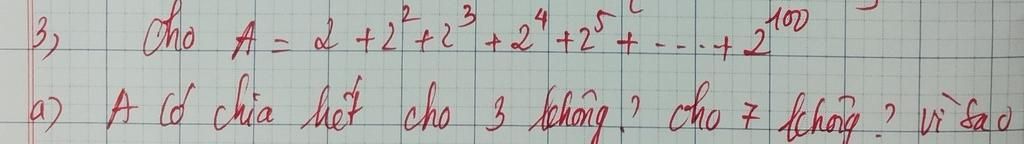 3) Cho A = 2 + 2² + 2³ + 2⁴ + 2⁵ + ---- + 2¹⁰⁰
a) A có chia hết cho 3 không? cho 7 không? vì sao